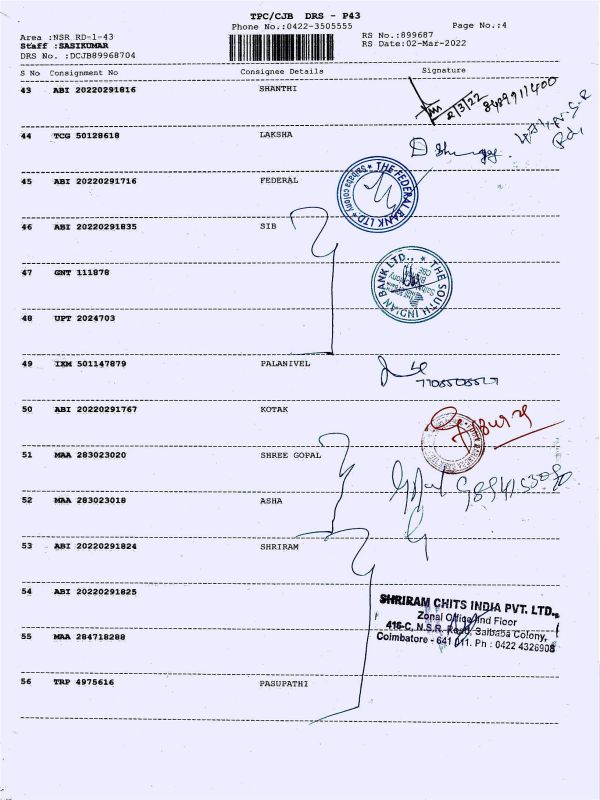 TPC/CJB DRS - P43
Phone No.:0422-3505555
Page No.:4
Area :NSR RD-1-43
RS No.:899687
Staff :SASIKUMAR
RS Date:02-Mar-2022
DRS No. :DCJB89968704
S No Consignment No Consignee Details Signature
43 ABI 20220291816 SHANTHI
2/3/22 8489911400
44 TCG 50128618 LAKSHA
45 ABI 20220291716 FEDERAL
THE FEDERAL BANK LTD * Saibaba colony *
46 ABI 20220291835 SIB
47 GNT 111878
THE SOUTH INDIAN BANK LTD.,
48 UPT 2024703
49 IXM 501147879 PALANIVEL
50 ABI 20220291767 KOTAK
51 MAA 283023020 SHREE GOPAL
52 MAA 283023018 ASHA
53 ABI 20220291824 SHRIRAM
54 ABI 20220291825
SHRIRAM CHITS INDIA PVT. LTD.,
Zonal Office IInd Floor
416-C, N.S.R. Road, Saibaba Colony,
Coimbatore - 641 011. Ph : 0422 4326908
55 MAA 284718288
56 TRP 4975616 PASUPATHI